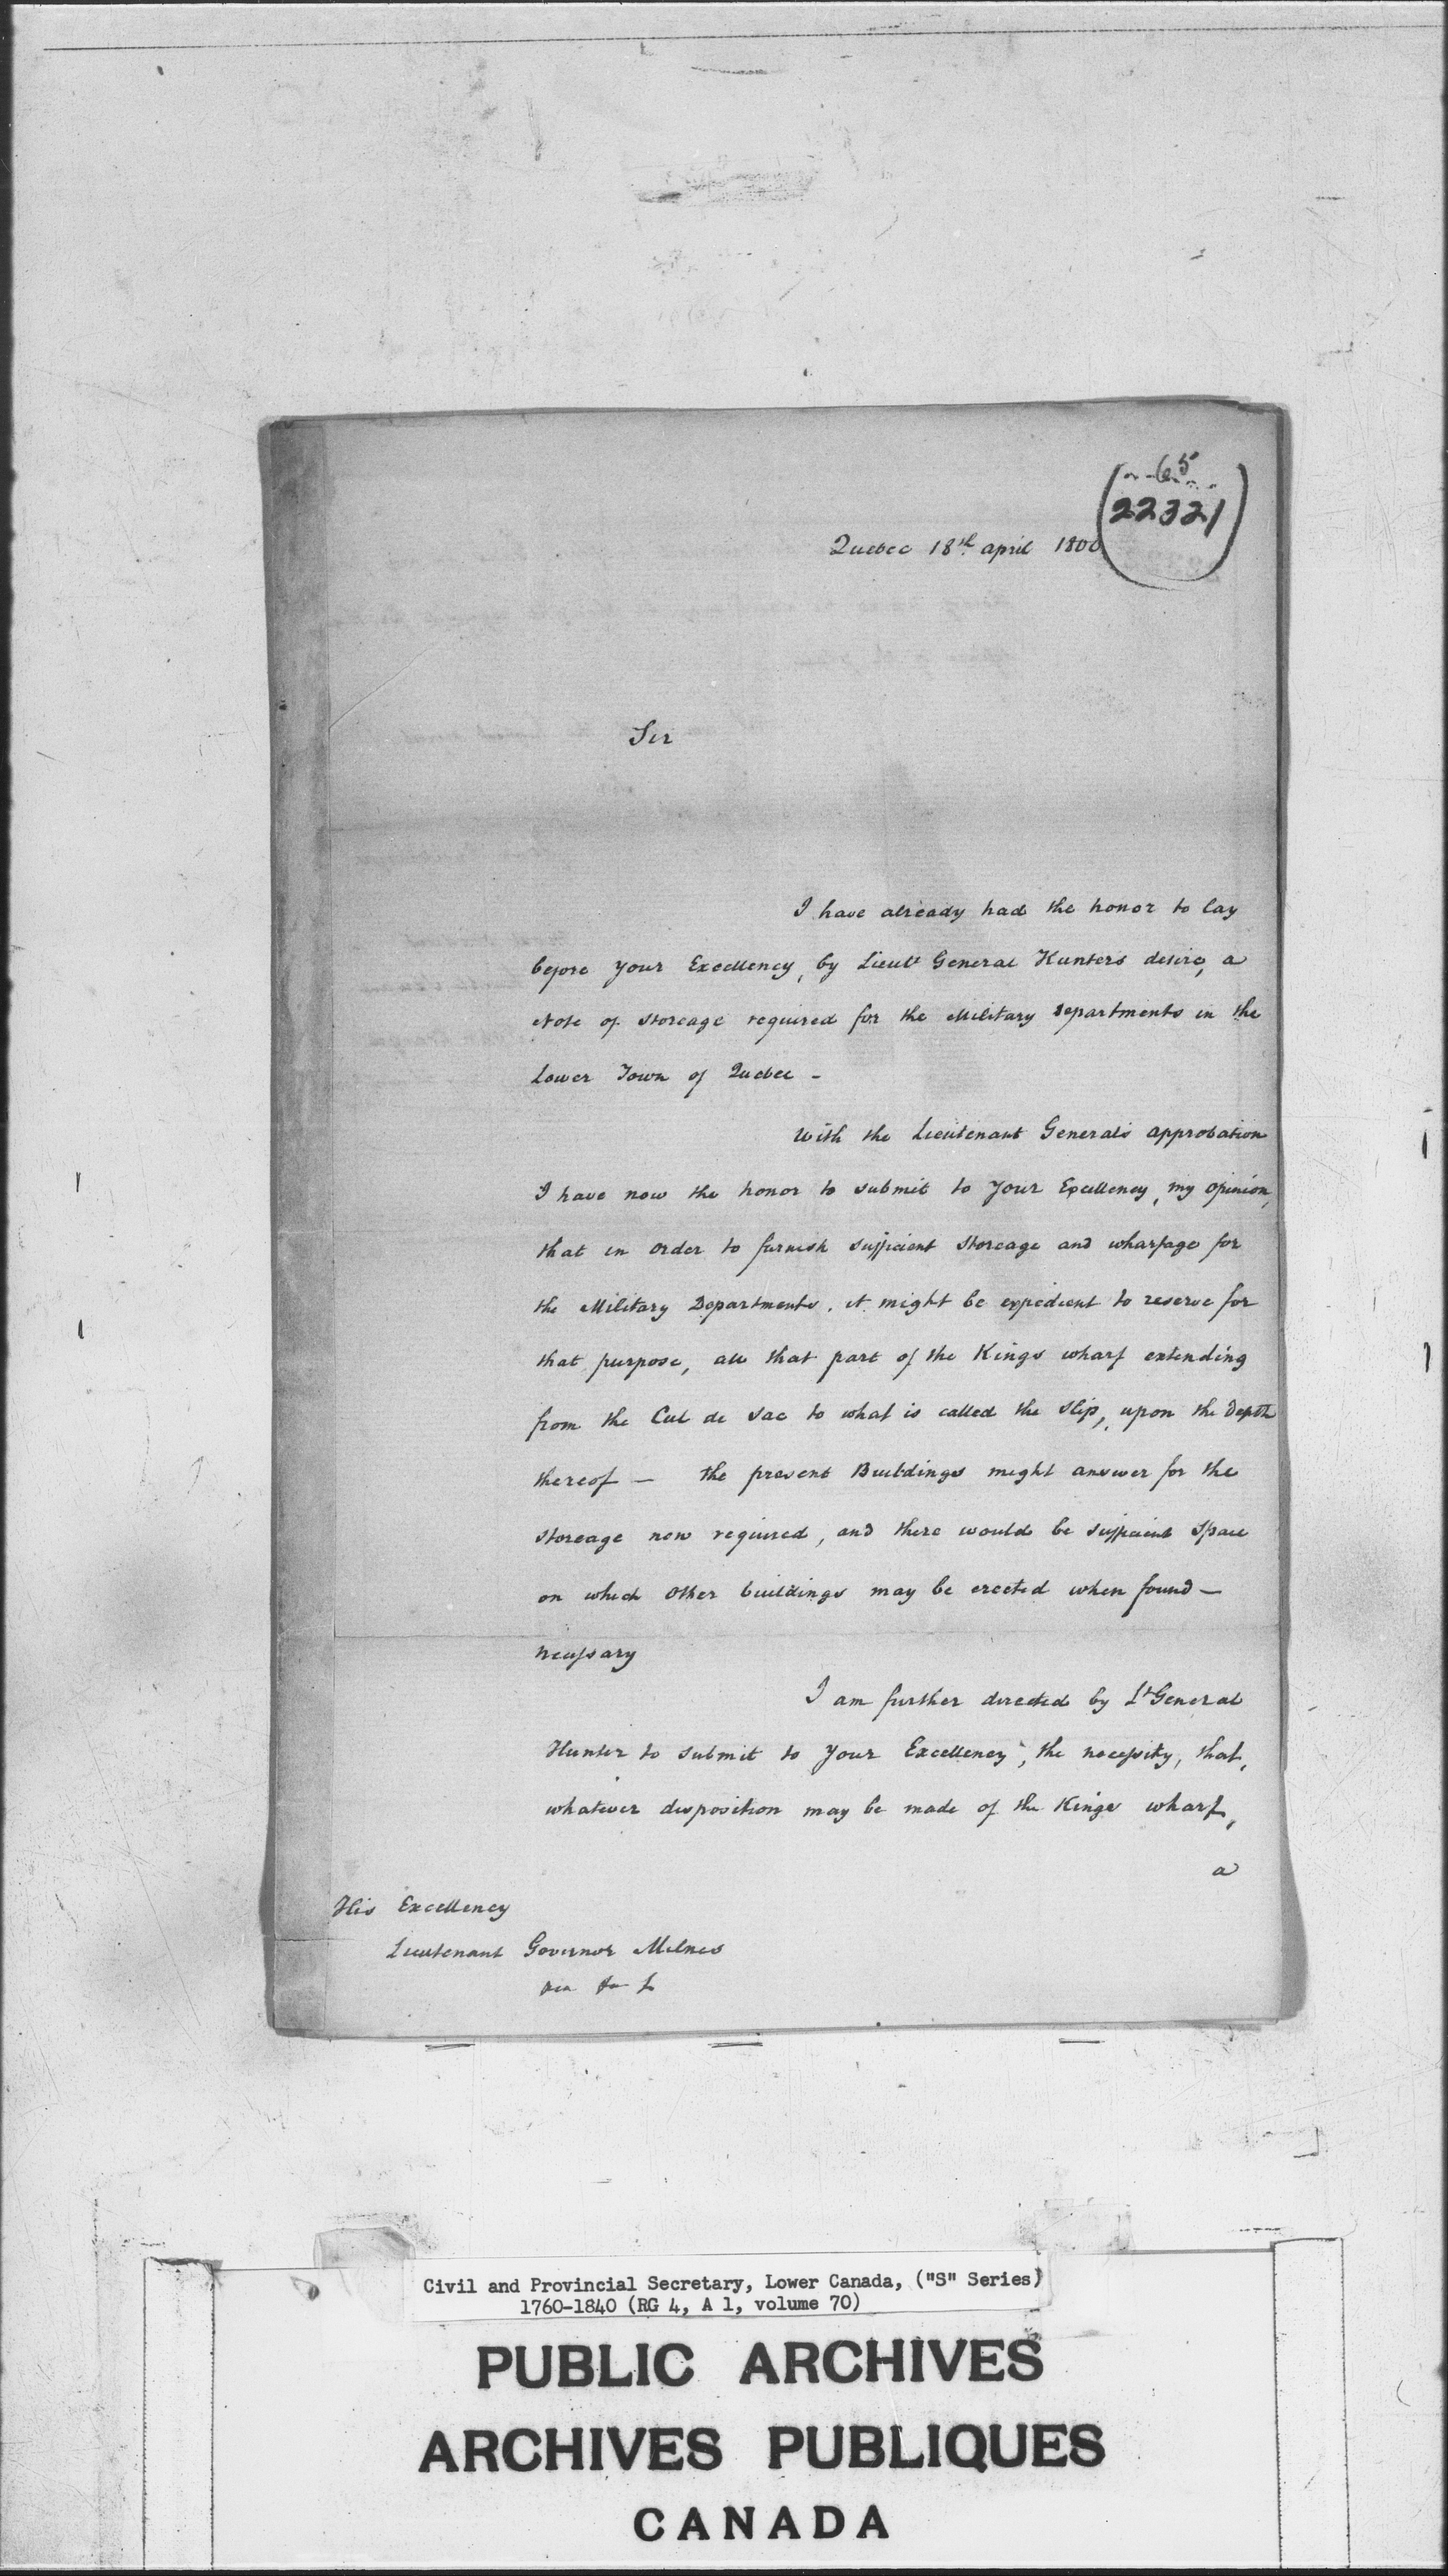 65
22321
Quebec 18th april 1800
Sir
I have already had the honor to lay
before your Excellency, by Lieut General Hunter's desire, a
Note of storeage required for the Military Departments in the
Lower Town of Quebec -
With the Lieutenant General's approbation
I have now the honor to submit to your Excellency, my opinion,
that in order to furnish sufficient storeage and wharfage for
the Military Departments, it might be expedient to reserve for
that purpose, all that part of the Kings wharf extending
from the Cul de Sac to what is called the slip, upon the depth
thereof — the present Buildings might answer for the
storeage now required, and there would be sufficient space
on which other buildings may be erected when found —
necessary
I am further directed by Lt General
Hunter to submit to your Excellency, the necessity, that,
whatever disposition may be made of the Kings wharf,
a
His Excellency
Lieutenant Governor Milnes
Civil and Provincial Secretary, Lower Canada, ("S" Series)
1760-1840 (RG 4, A 1, volume 70)
PUBLIC ARCHIVES
ARCHIVES PUBLIQUES
CANADA